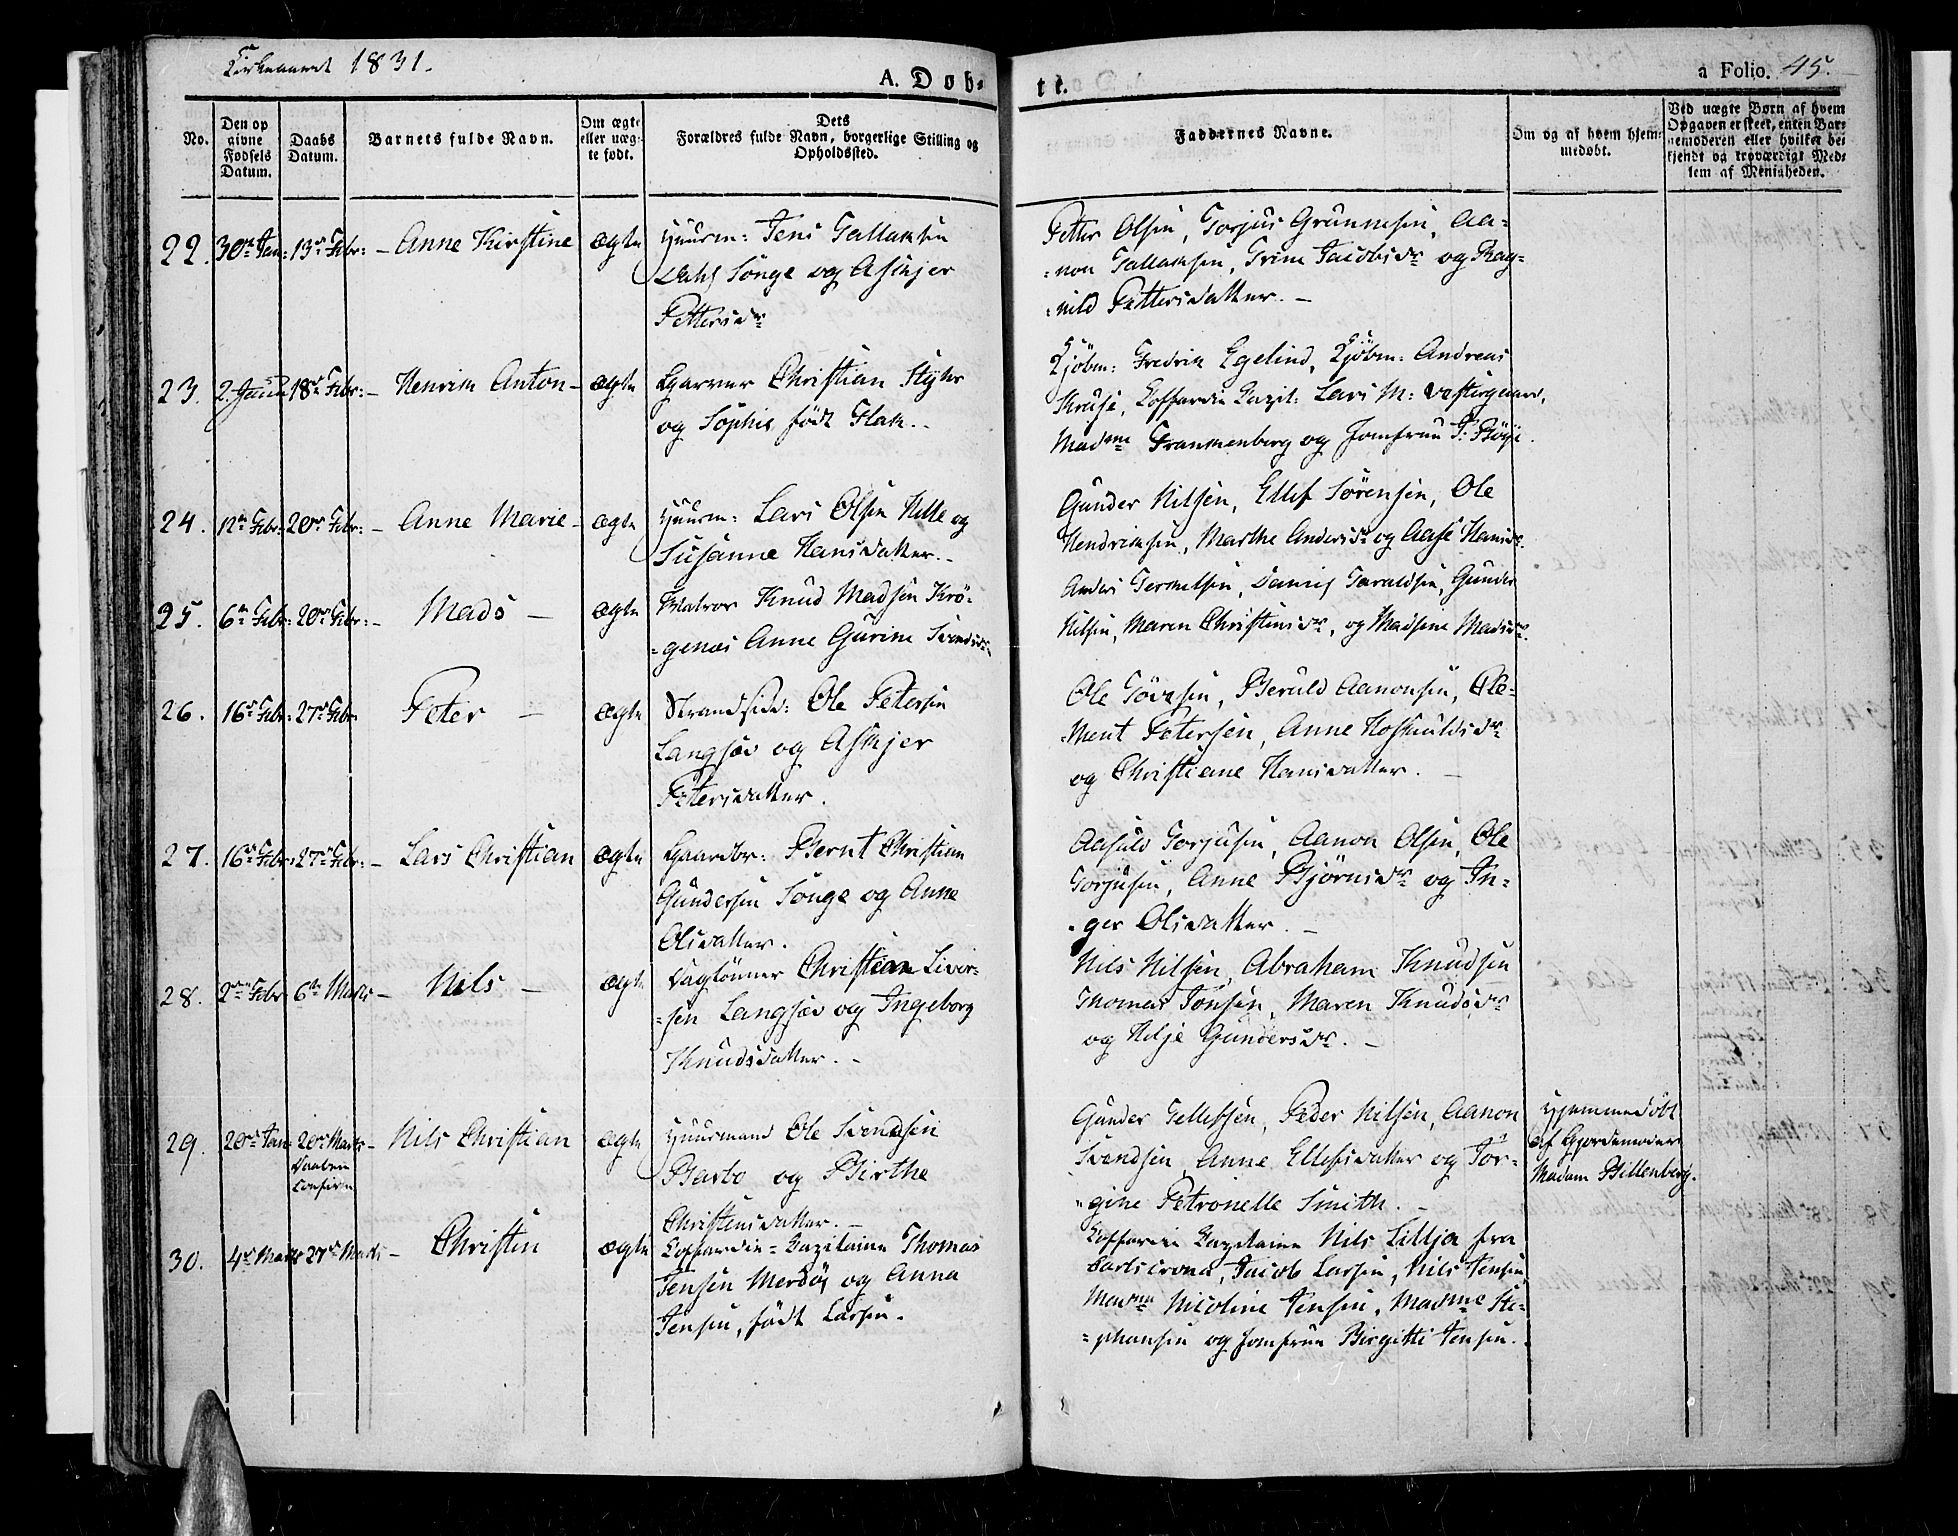 Kirkeaaret 1831.
A. Døb-
te.
a Folio. 45.
No.
Den op
givne
Fødsels
Datum.
Daabs
Datum.
Barnets fulde Navn.
Om ægte
eller uæg-
te født.
Dets
Forældres fulde Navn, borgerlige Stilling og
Opholdssted.
Faddernes Navne.
Om og af hvem hjem-
medøbt.
Ved uægte Børn af hvem
Opgaven er skeet, enten Bar-
nemoderen eller hvilket be-
kjendt og troværdigt Med-
lem af Menigheden.
22. 30te Jan: 13de Febr: - Anne Kirstine ægte
Huusm: Jens Tallaksen
Dahl Songe og Askjer
Pettersdr
Petter Olsen, Torjus Grunnesen, Aa-
=non Tallaksen, Trine Jacobsdr og Rag-
=nild Pettersdatter. -
23. 2. Janr 18de Febr: - Henrik Anton - ægte
Garver Christian Styhr
og Sophie født Flak. -
Kjøbm: Fredrik Egelind, Kjøbm: Andreas
Kruse, Coffardie Capit: Lars M: Vestergaard,
Madme Frankenberg og Jomfrue P: Bøye.
24. 12te Febr: 20de Febr: - Anne Marie - ægte
Huusm: Lars Olsen Hille og
Susanne Hansdatter. -
Gunder Nilsen, Ellef Sørensen, Ole
Hendriksen, Marthe Andersdr og Aase Hansdr.
25. 6te Febr: 20de Febr: - Mads - ægte
Matros Knud Madsen Krø-
=genes Anne Gurine Svendsdr
Anders Terkelsen, Daniel Taraldsen, Gunder
Nilsen, Maren Christensdr, og Madsene Madsdr.
26. 16de Febr: 27de Febr Peter - ægte
Strandsid: Ole Petersen
Langsæv og Askjer
Petersdatter.
Ole Tøvesen, Beruld Aanonsen, Cle-
=ment Petersen, Anne Hoskuldsdr
og Christiane Hansdatter. -
27. 16de Febr: 27de Febr: - Lars Christian ægte
Gaardbr: Bernt Christian
Gundersen Songe og Anne
Olsdatter.
Aasuld Torjusen, Aanon Olsen, Ole
Torjusen, Anne Bjørnsdr og In-
=ger Olsdatter. -
28. 2den Febr: 6te Marts - Nils - ægte
Daglønner Christian Siver-
=sen Langsæv og Ingeborg
Knudsdatter. -
Nils Nilsen, Abraham Knudsen
Thomas Tønsen, Maren Knudsdr
og Helje Gundersdr. -
29. 20de Jan: 20de Marts - Nils Christian ægte
Daaben
Confirm
Huusmand Ole Svendsen
Barbo og Birthe
Christensdatter. -
Gunder Tellefsen, Peder Nilsen, Aanon
Svendsen, Anne Ellefsdatter og Tør-
=gine Petronelle Smith. -
Hjemmedøbt
af Gjordemoder
Madam Billenberg.
30. 4de Marts 27de Marts - Christen ægte
Coffardie=Capitaine Thomas
Jensen Merdøe og Anna
Jensen, født Larsen.
Coffardie Capitaine Nils Lillja fra
Carlscrona, Jacob Larsen, Nils Jensen
Madme Nicoline Jensen, Madme Ste-
=phansen og Jomfrue Birgitte Jensen.